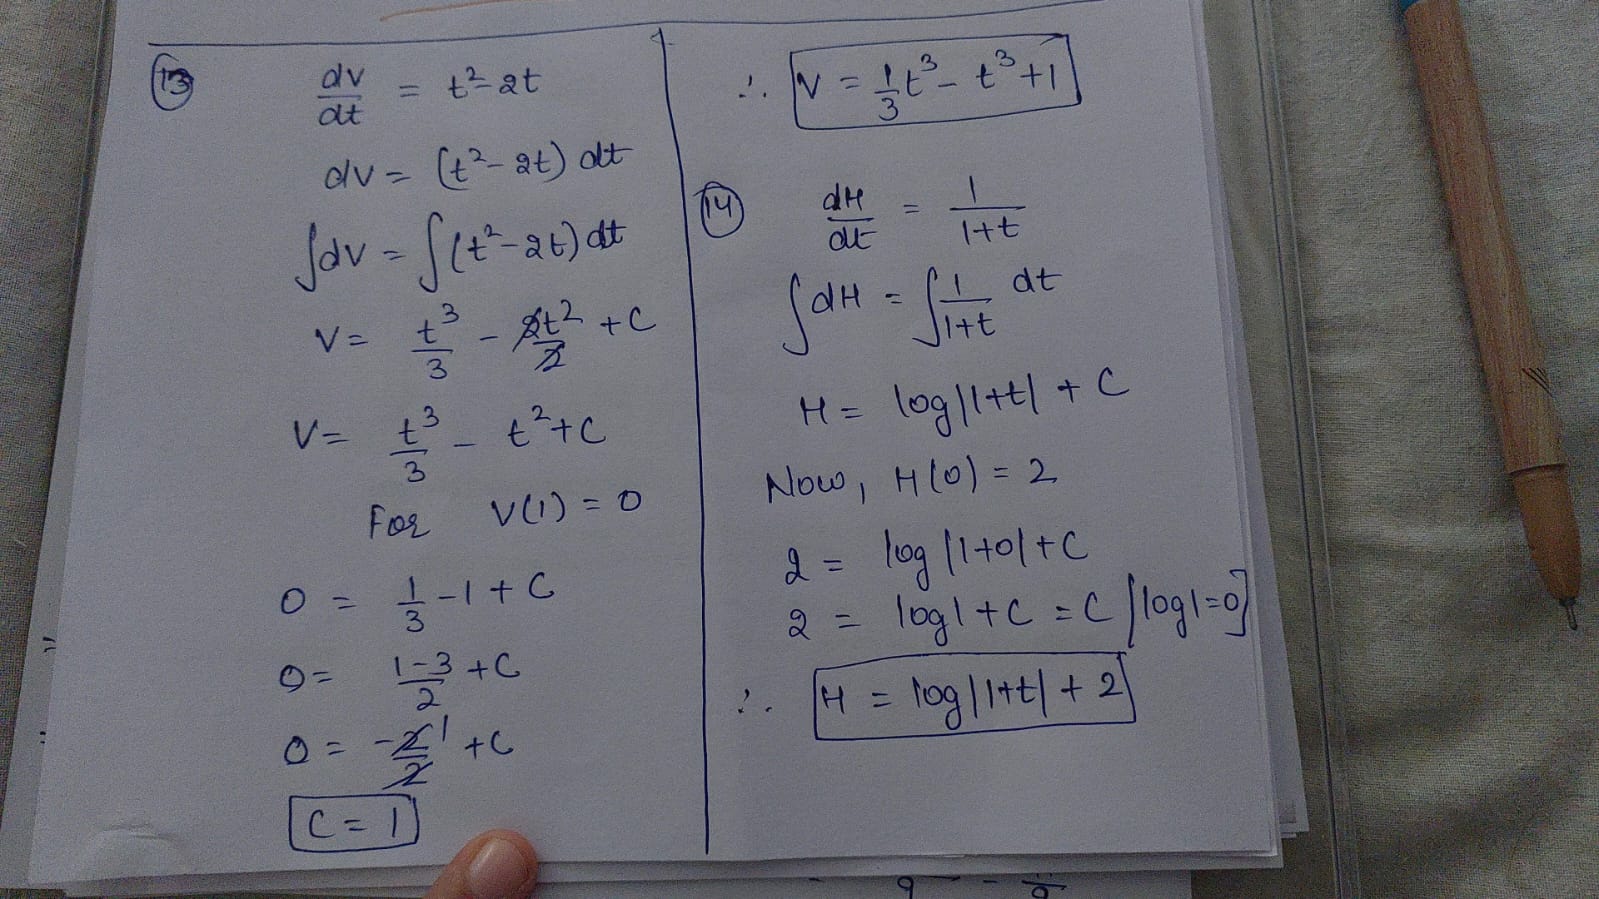 13 dv/dt = t² - 2t
dv = (t² - 2t) dt
∫dv = ∫(t² - 2t) dt
V = t³/3 - 2t²/2 + C
V = t³/3 - t² + C
For V(1) = 0
0 = 1/3 - 1 + C
0 = 1-3/2 + C
0 = -2/2 1 + C
C = 1
∴ V = 1/3 t³ - t³ + 1
14 dH/dt = 1/1+t
∫dH = ∫1/1+t dt
H = log|1+t| + C
Now, H(0) = 2
2 = log|1+0| + C
2 = log1 + C = C [log1=0]
∴ H = log|1+t| + 2